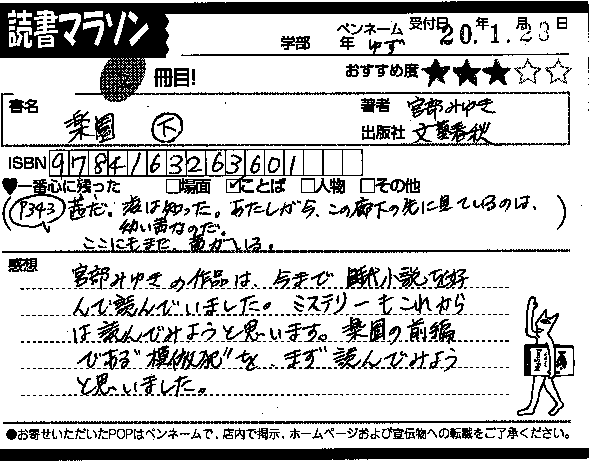 読書マラソン
学部 年 ペンネーム ゆず 受付日 20.年1.月23日
冊目! おすすめ度 ★★★☆☆
書名 楽園 下
著者 宮部みゆき
出版社 文藝春秋
ISBN 9784163263601
♥一番心に残った □場面 ☑ことば □人物 □その他
(P343 茜だ。滋は知った。あたしが今、この廊下の先に見ているのは、
幼い茜なのだ。
ここにもまた、茜がいる。)
感想
宮部みゆきの作品は、今まで時代小説を好
んで読んでいました。ミステリーもこれから
は読んでみようと思います。楽園の前編
である"模倣犯"を、まず読んでみよう
と思いました。
●お寄せいただいたPOPはペンネームで、店内で掲示、ホームページおよび宣伝物への転載をご了承ください。